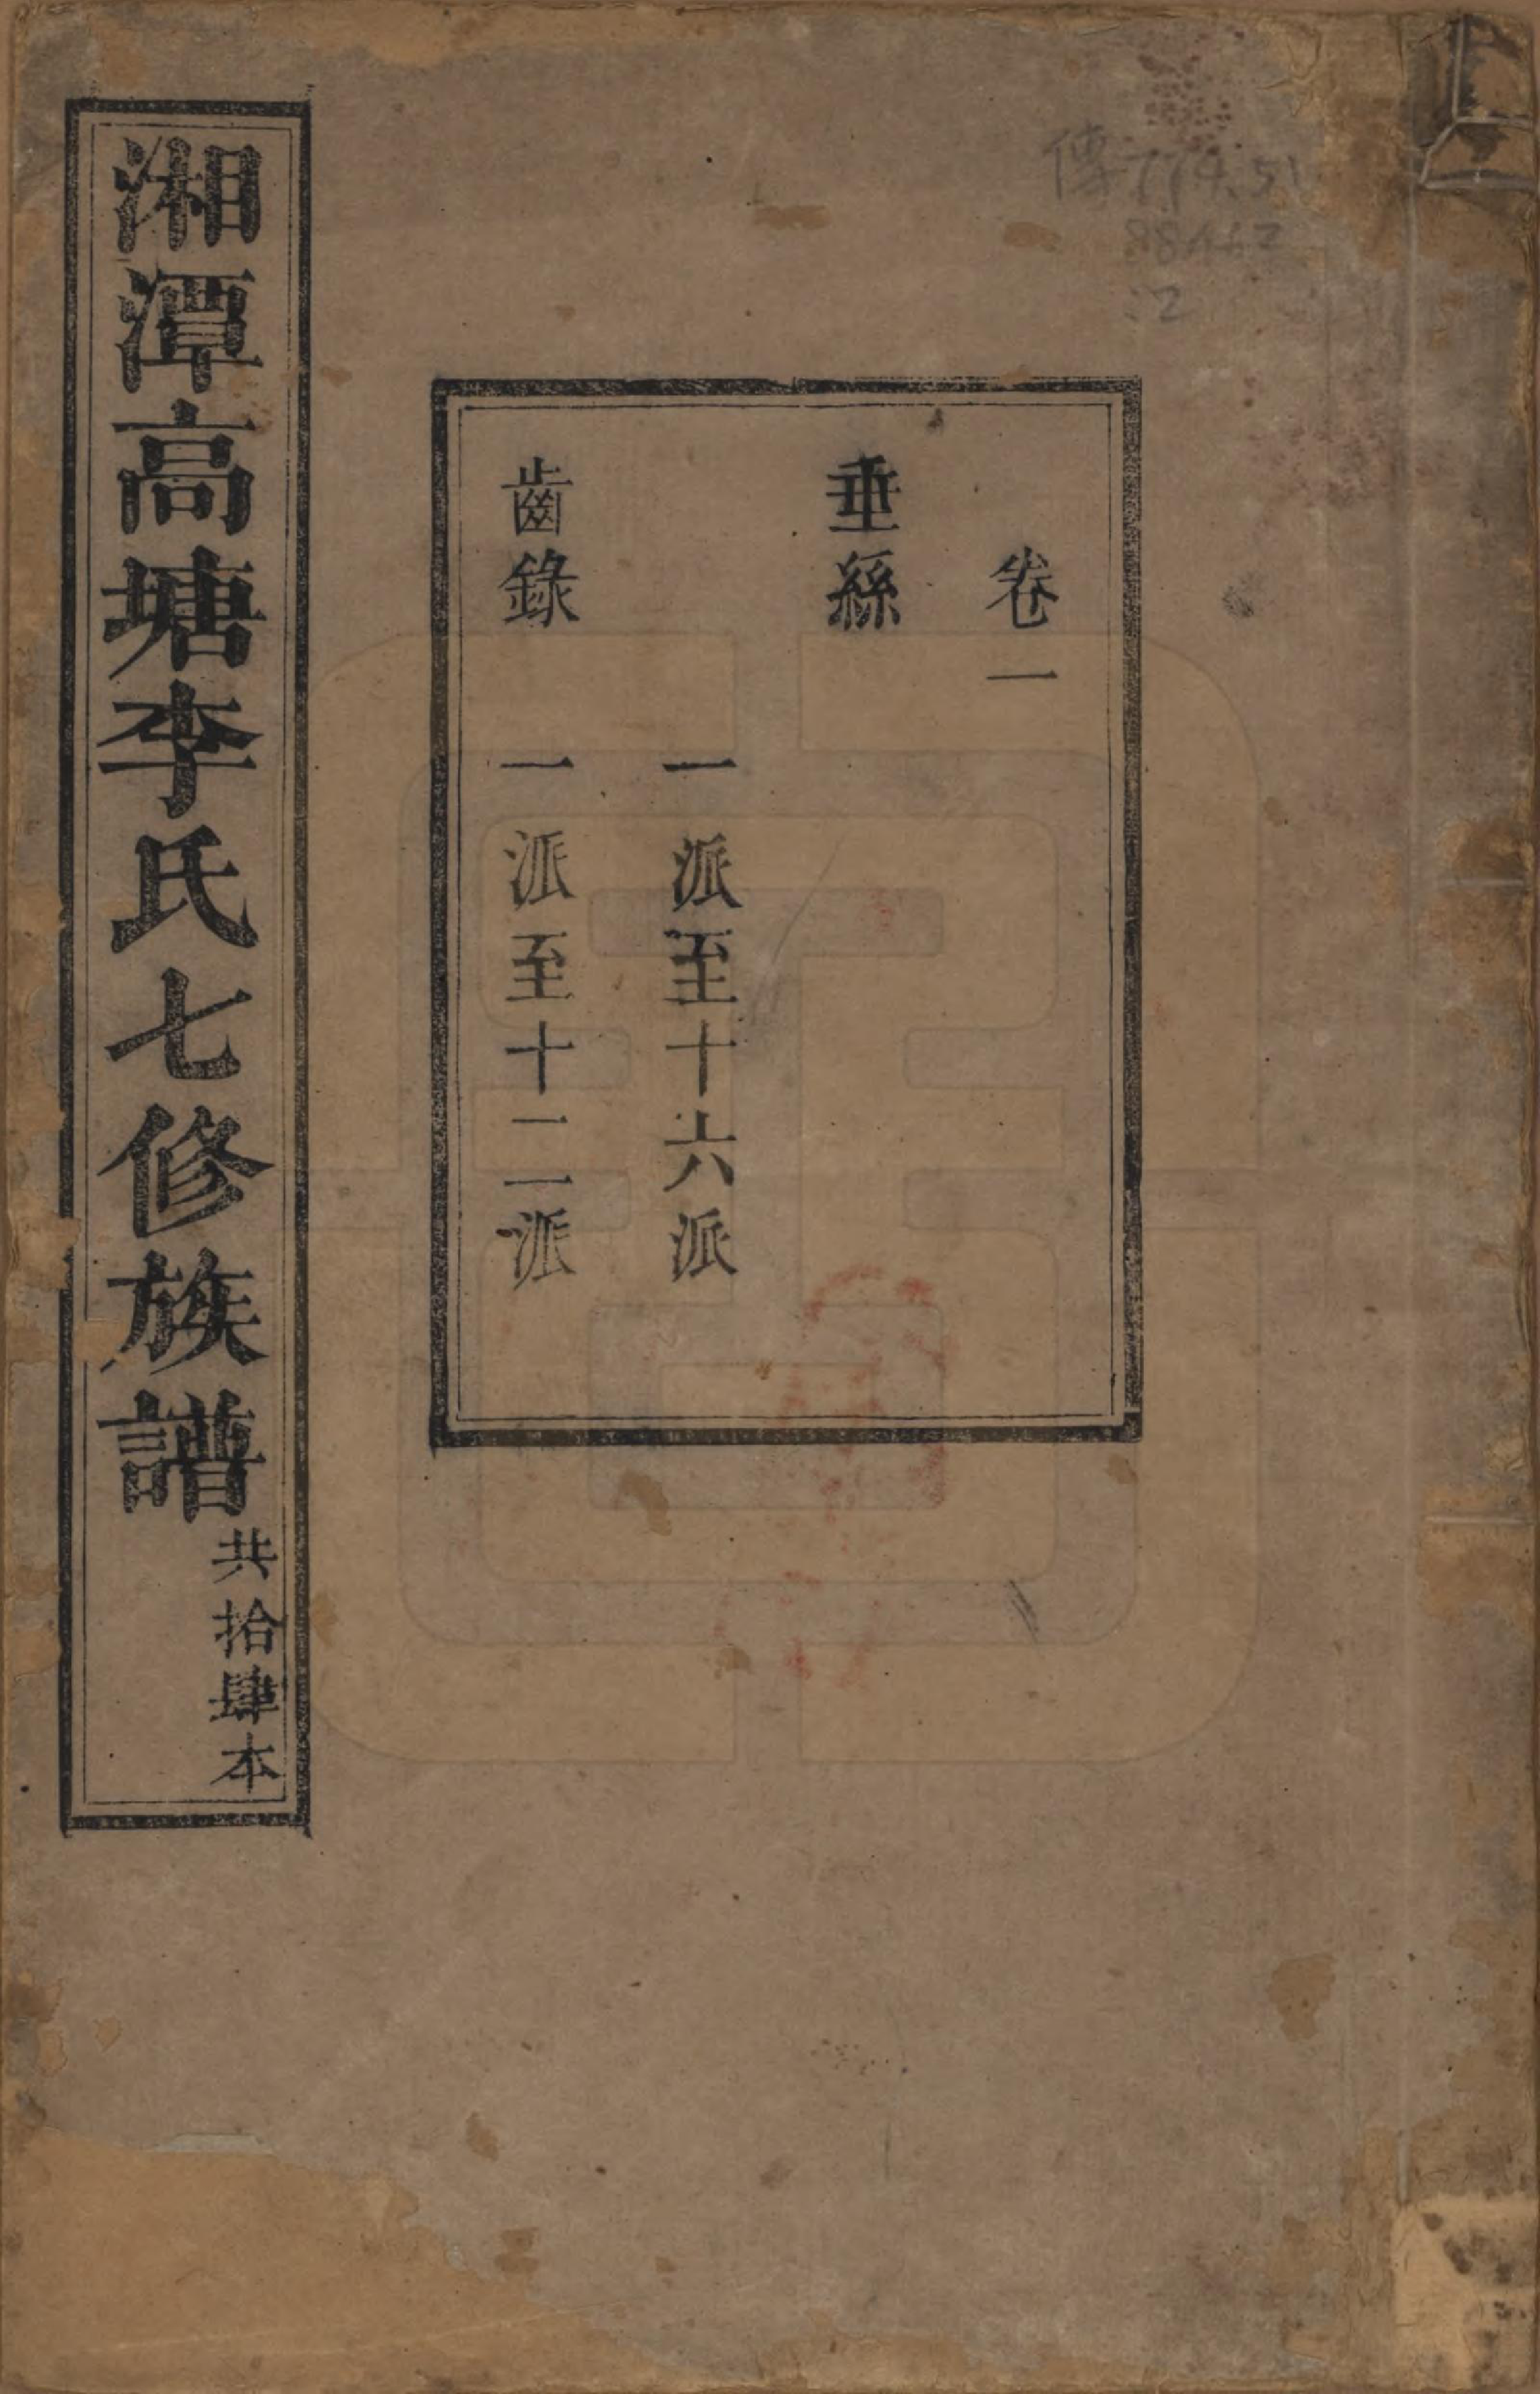 卷一
垂絲
一派至十六派
齒錄
一派至十二派
湘潭高塘李氏七修族譜
共拾肆本
傳774.51